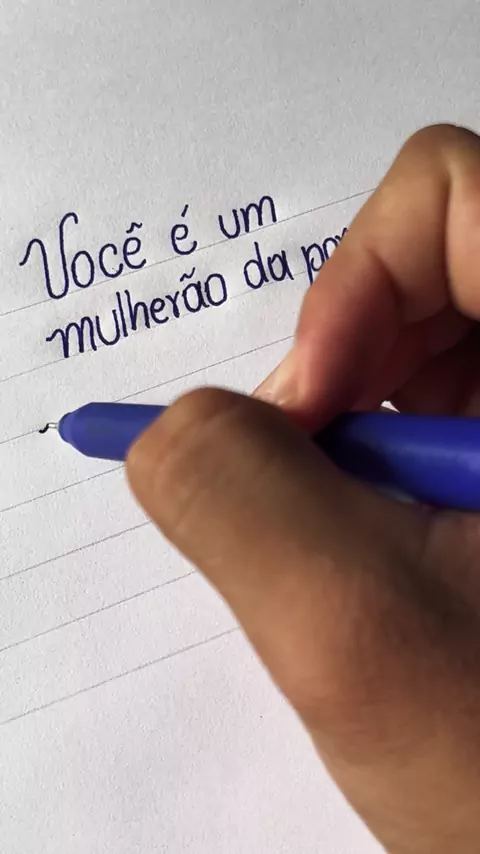 Você é um
mulherão da